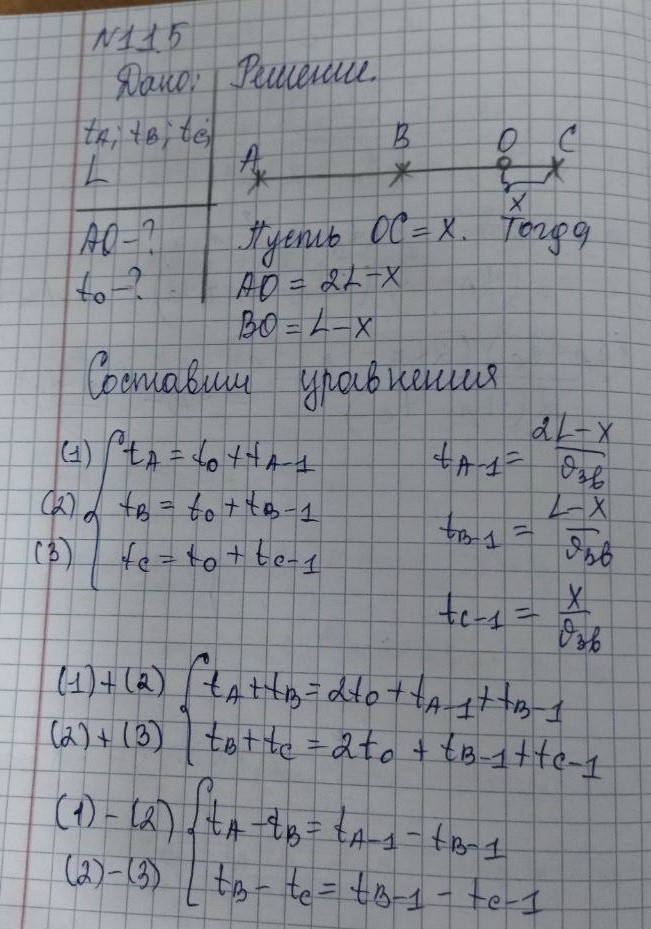 N115
Дано: Решение.
tA; tB; tC;
L
A B O C
x
AO-? Пусть OC = x. Тогда
t0-? AO = 2L-x
BO = L-x
Составим уравнения
(1) tA = t0 + tA-1 tA-1 = (2L-x)/υзв
(2) tB = t0 + tB-1 tB-1 = (L-x)/υзв
(3) tC = t0 + tC-1 tC-1 = x/υзв
(1)+(2) tA + tB = 2t0 + tA-1 + tB-1
(2)+(3) tB + tC = 2t0 + tB-1 + tC-1
(1)-(2) tA - tB = tA-1 - tB-1
(2)-(3) tB - tC = tB-1 - tC-1